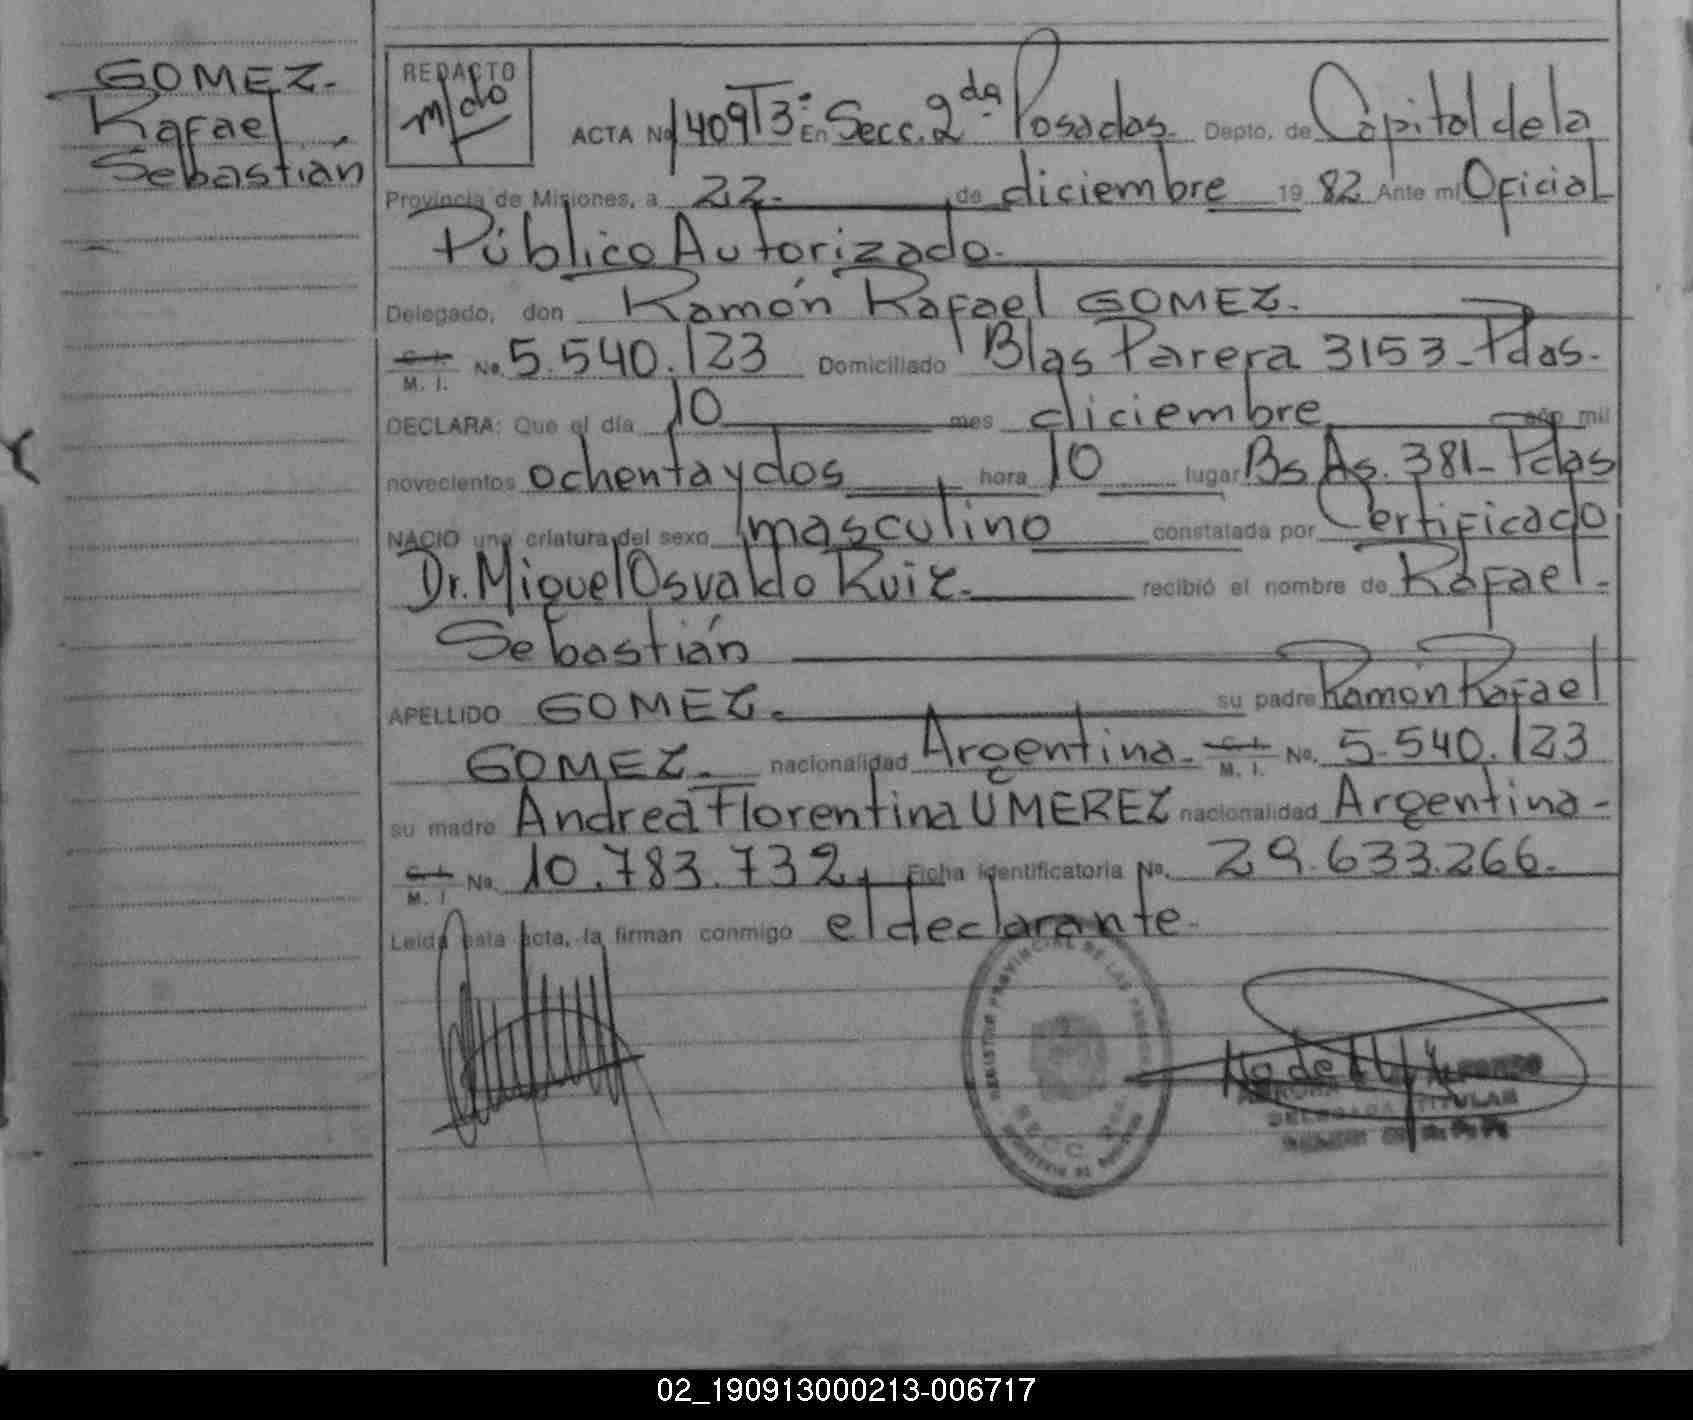 GOMEZ.
Rafael
Sebastián
REDACTO
ACTA Nº 1409T3= En Secc. 2da Posadas. Depto. de Capital de la
Provincia de Misiones, a 22. de diciembre 19 82 Ante mí Oficial
Público Autorizado.
Delegado, don Ramón Rafael GOMEZ.
C. I. M. I. No. 5.540.123 Domiciliado Blas Parera 3153-Pdas.
DECLARA: Que el día 10 mes diciembre año mil
novecientos ochenta y dos hora 10 lugar Bs. As. 381-Pdas
NACIO una criatura del sexo masculino constatada por Certificado
Dr. Miguel Osvaldo Ruiz. recibió el nombre de Rafael-
Sebastián
APELLIDO GOMEZ. su padre Ramón Rafael
GOMEZ. nacionalidad Argentina. C. I. M. I. No. 5.540.123
su madre Andrea Florentina UMEREZ nacionalidad Argentina-
C. I. M. I. No. 10.783.732 Ficha identificatoria No. 29.633.266.
Leida esta acta, la firman conmigo el declarante.
REGISTRO PROVINCIAL DE LAS
SECC. 2da
TITULAR
02_190913000213-006717